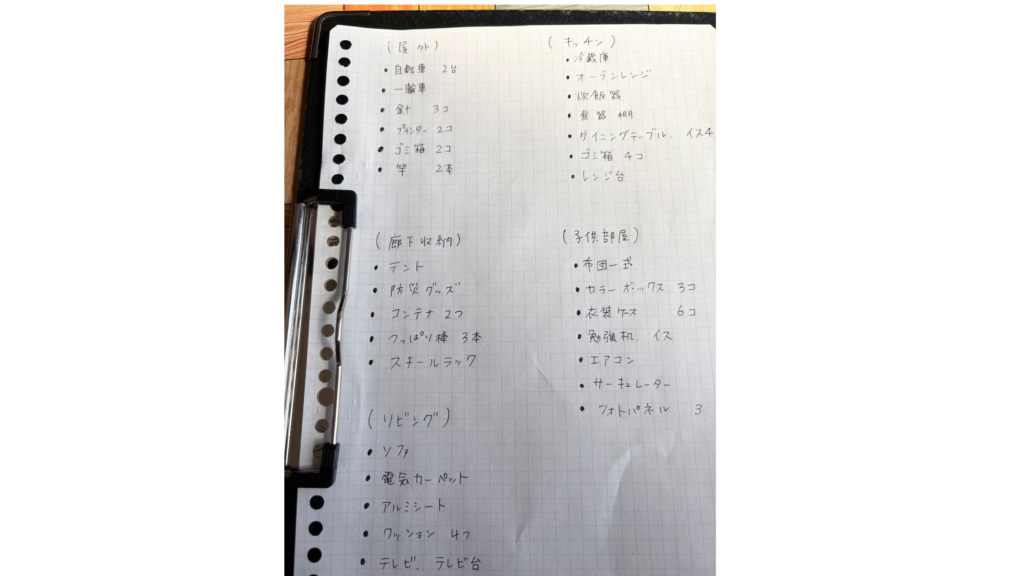 (屋外)
・自転車 2台
・一輪車
・鉢 3コ
・プランター 2コ
・ゴミ箱 2コ
・竿 2本
(廊下収納)
・テント
・防災グッズ
・コンテナ 2つ
・つっぱり棒 3本
・スチールラック
(リビング)
・ソファ
・電気カーペット
・アルミシート
・クッション 4つ
・テレビ、テレビ台
(キッチン)
・冷蔵庫
・オーブンレンジ
・炊飯器
・食器棚
・ダイニングテーブル、イス4
・ゴミ箱 4コ
・レンジ台
(子供部屋)
・布団一式
・カラーボックス 3コ
・衣装ケース 6コ
・勉強机、イス
・エアコン
・サーキュレーター
・フォトパネル 3